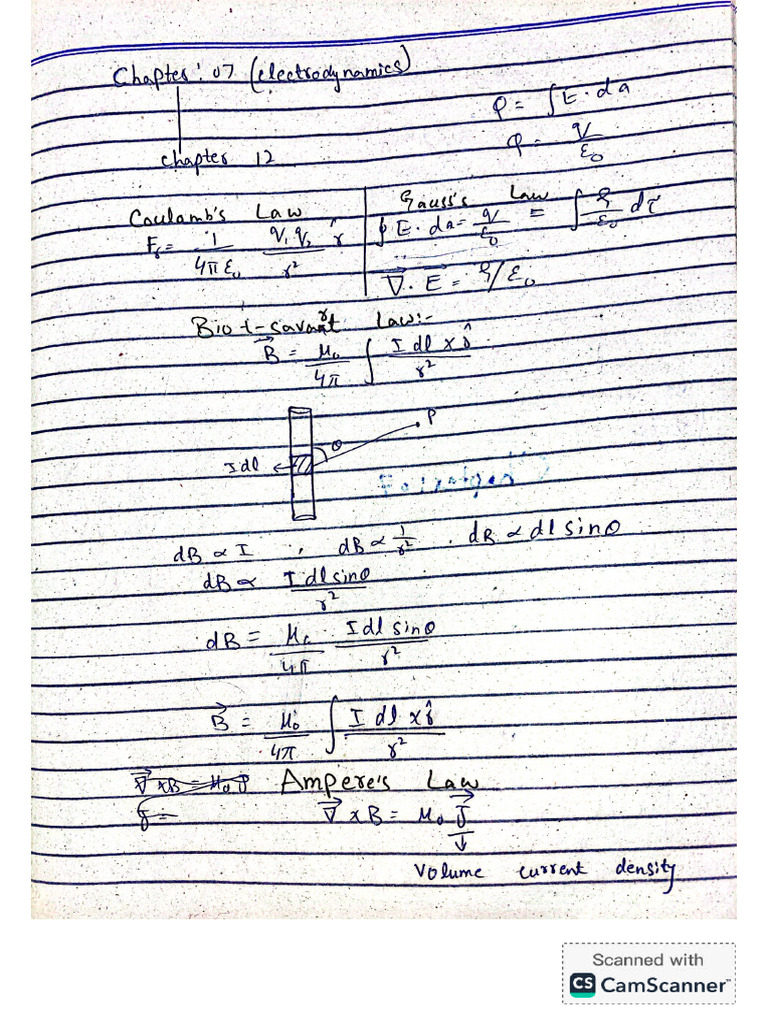 Chapter: 07 (electrodynamics)
φ = ∫E · da
φ = q/ε₀
chapter 12
Coulamb's Law
F = 1/4πε₀ q₁q₂/r² r̂
Gauss's Law
∮E · da = q/ε₀ = ∫ρ/ε₀ dτ
∇ · E = ρ/ε₀
Biot-savart law:-
B = μ₀/4π ∫ I dl × r̂/r²
P
θ
Idl
dB ∝ I , dB ∝ 1/r² . dB ∝ dl sinθ
dB ∝ I dl sinθ/r²
dB = μ₀/4π Idl sinθ/r²
B = μ₀/4π ∫ I dl × r̂/r²
∇ × B = μ₀ J Ampere's Law
J = ∇ × B = μ₀ J
Volume current density
Scanned with
CS CamScanner™